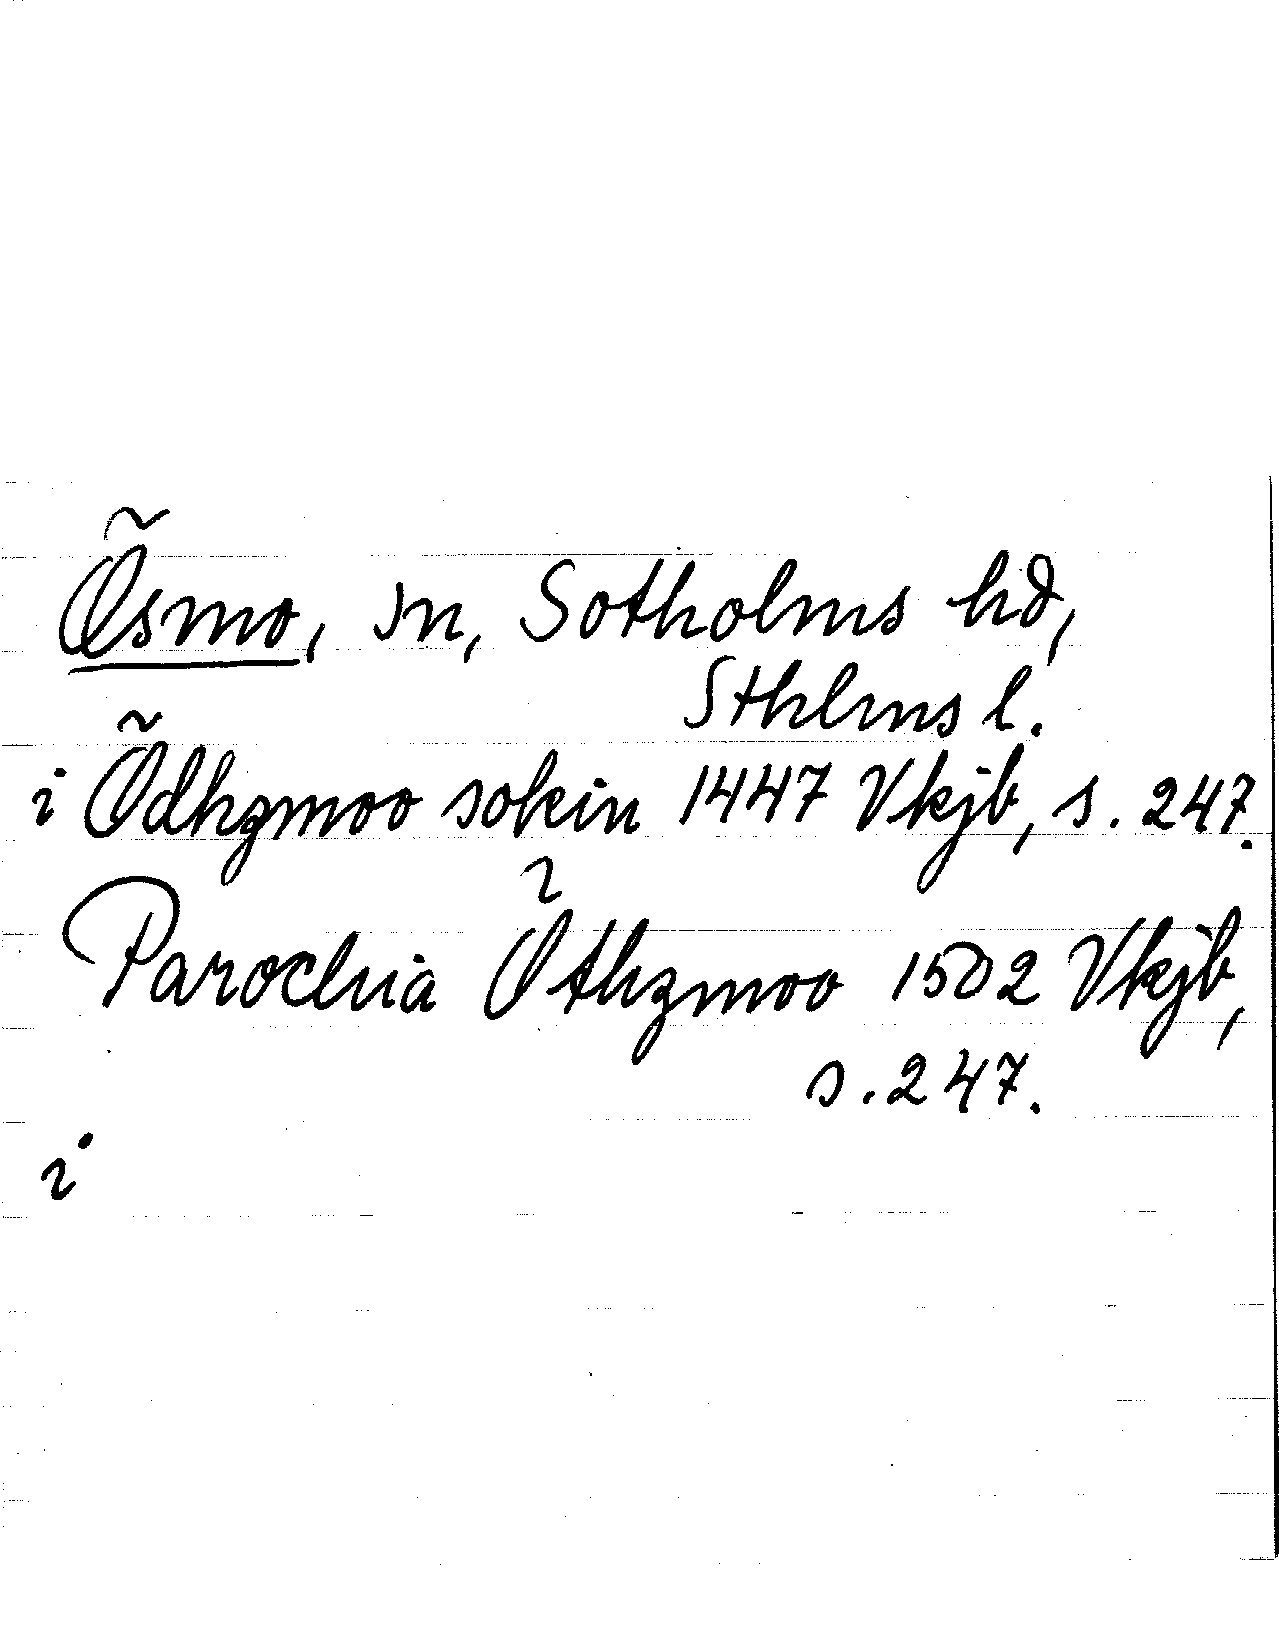 Ösmo, sn, Sotholms hd,
Sthlms l.
i Ödhzmoo sokin 1447 Vkjb, s. 247.
Parochia Öthzmoo 1502 Vkjb,
s. 247.
i